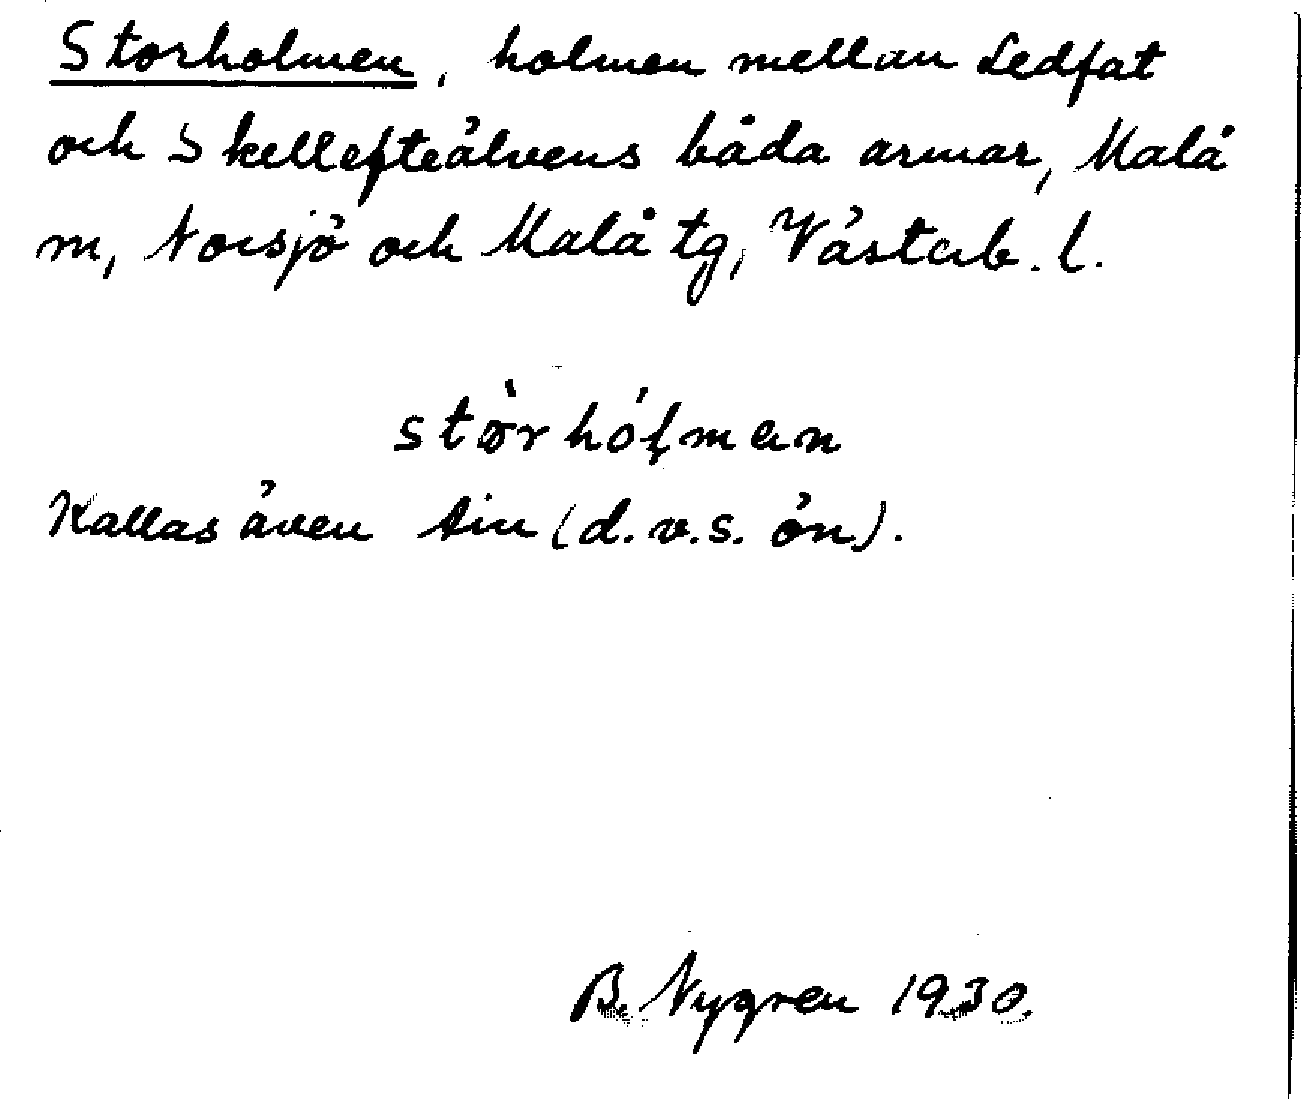 Storholmen, holmen mellan Ledfat
och Skellefteälvens båda armar, Malå
m, Norsjö och Malå tg, Västerb. l.
stòrhólman
Kallas även Ain (d.v.s. ön).
B. Nygren 1930.